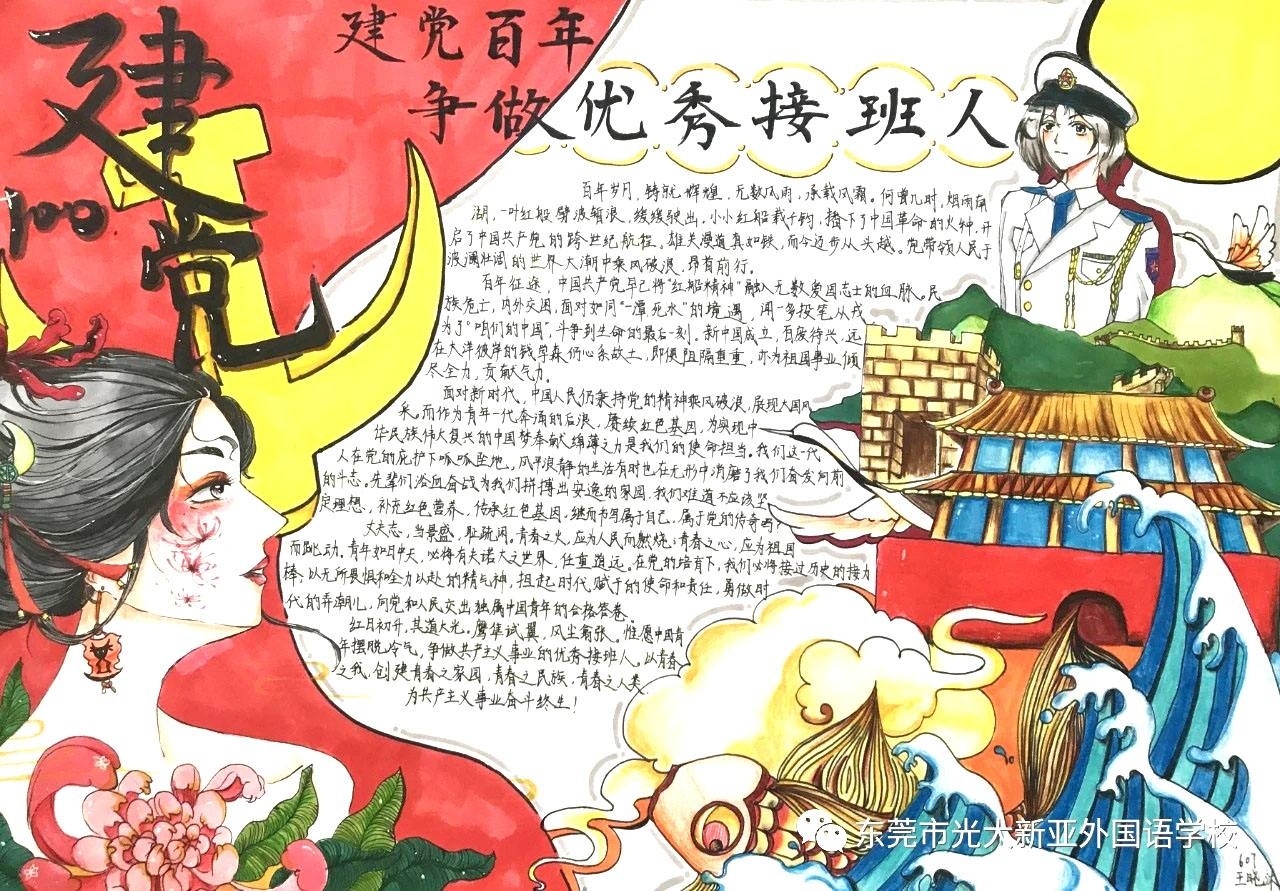 建党
100
建党百年
争做优秀接班人
百年岁月，铸就辉煌，无数风雨，承载风霜。何曾几时，烟雨南
湖，一叶红船劈波斩浪，缓缓驶出，小小红船载千钧，播下了中国革命的火种，开
启了中国共产党的跨世纪航程，雄关漫道真如铁，而今迈步从头越。党带领人民于
波澜壮阔的世界大潮中乘风破浪，昂首前行。
百年征途，中国共产党早已将“红船精神”融入无数爱国志士的血脉。民
族危亡，内外交困，面对如同“一潭死水”的境遇，闻一多投笔从戎
为了“咱们的中国”，斗争到生命的最后一刻。新中国成立，百废待兴，远
在大洋彼岸的钱学森仍心系故土，即便阻隔重重，亦为祖国事业倾
尽全力，贡献气力。
面对新时代，中国人民仍秉持党的精神乘风破浪，展现大国风
采。而作为青年一代奔涌的后浪，赓续红色基因，为实现中
华民族伟大复兴的中国梦奉献绵薄之力是我们的使命担当。我们这一代
人在党的庇护下呱呱坠地，风平浪静的生活有时也在无形中消磨了我们奋发向前
的斗志。先辈们浴血奋战为我们拼搏出安逸的家园，我们难道不应该坚
定理想，补充红色营养，传承红色基因，继而书写属于自己，属于党的传奇吗？
丈夫志，当景盛，耻疏闲。青春之火，应为人民而燃烧；青春之心，应为祖国
而跳动。青年如日中天，必将有夫诺大之世界，任重道远。在党的培育下，我们必将接过历史的接力
棒，以无所畏惧和全力以赴的精气神，担起时代赋予的使命和责任，勇做时
代的弄潮儿，向党和人民交出独属中国青年的合格答卷。
红日初升，其道大光。鹰隼试翼，风尘翕张。惟愿中国青
年摆脱冷气，争做共产主义事业的优秀接班人。以青春
之我，创建青春之家园，青春之民族，青春之人类
为共产主义事业奋斗终生！
东莞市光大新亚外国语学校
607